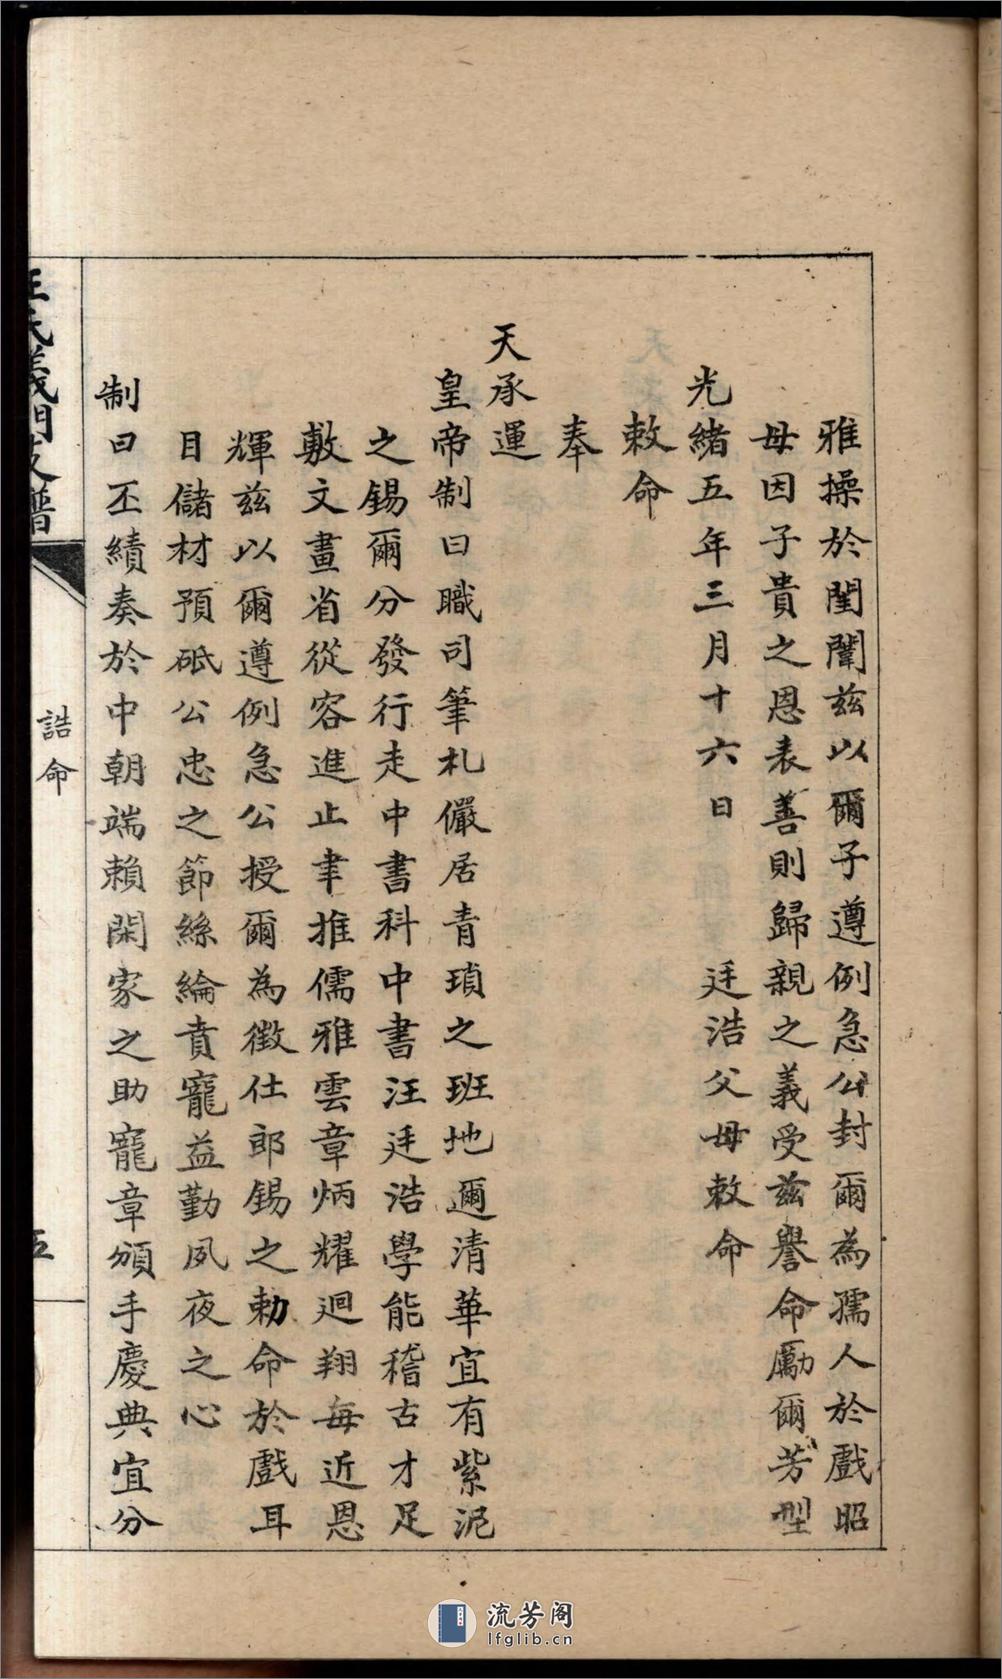 雅操於閨闈茲以爾子遵例急公封爾為孺人於戲昭
母因子貴之恩表善則歸親之義受茲譽命勵爾芳型
光緒五年三月十六日　廷浩父母敕命
敕命
奉
天承運
皇帝制曰職司筆札儼居青瑣之班地邇清華宜有紫泥
之錫爾分發行走中書科中書汪廷浩學能稽古才足
敷文畫省從容進止聿推儒雅雲章炳耀迴翔每近恩
輝茲以爾遵例急公授爾為徵仕郎錫之勅命於戲耳
目儲材預砥公忠之節絲綸賁寵益勤夙夜之心
制曰丕績奏於中朝端賴閑家之助寵章頒手慶典宜分
汪氏義門支譜
誥命
五
流芳阁
lfglib.cn